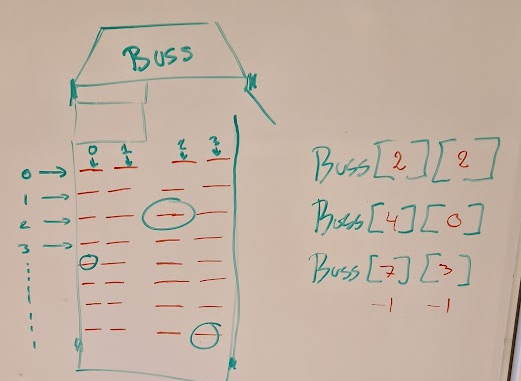 Buss
0 1 2 3
0
1
2
3
Buss[2][2]
Buss[4][0]
Buss[7][3]
-1 -1